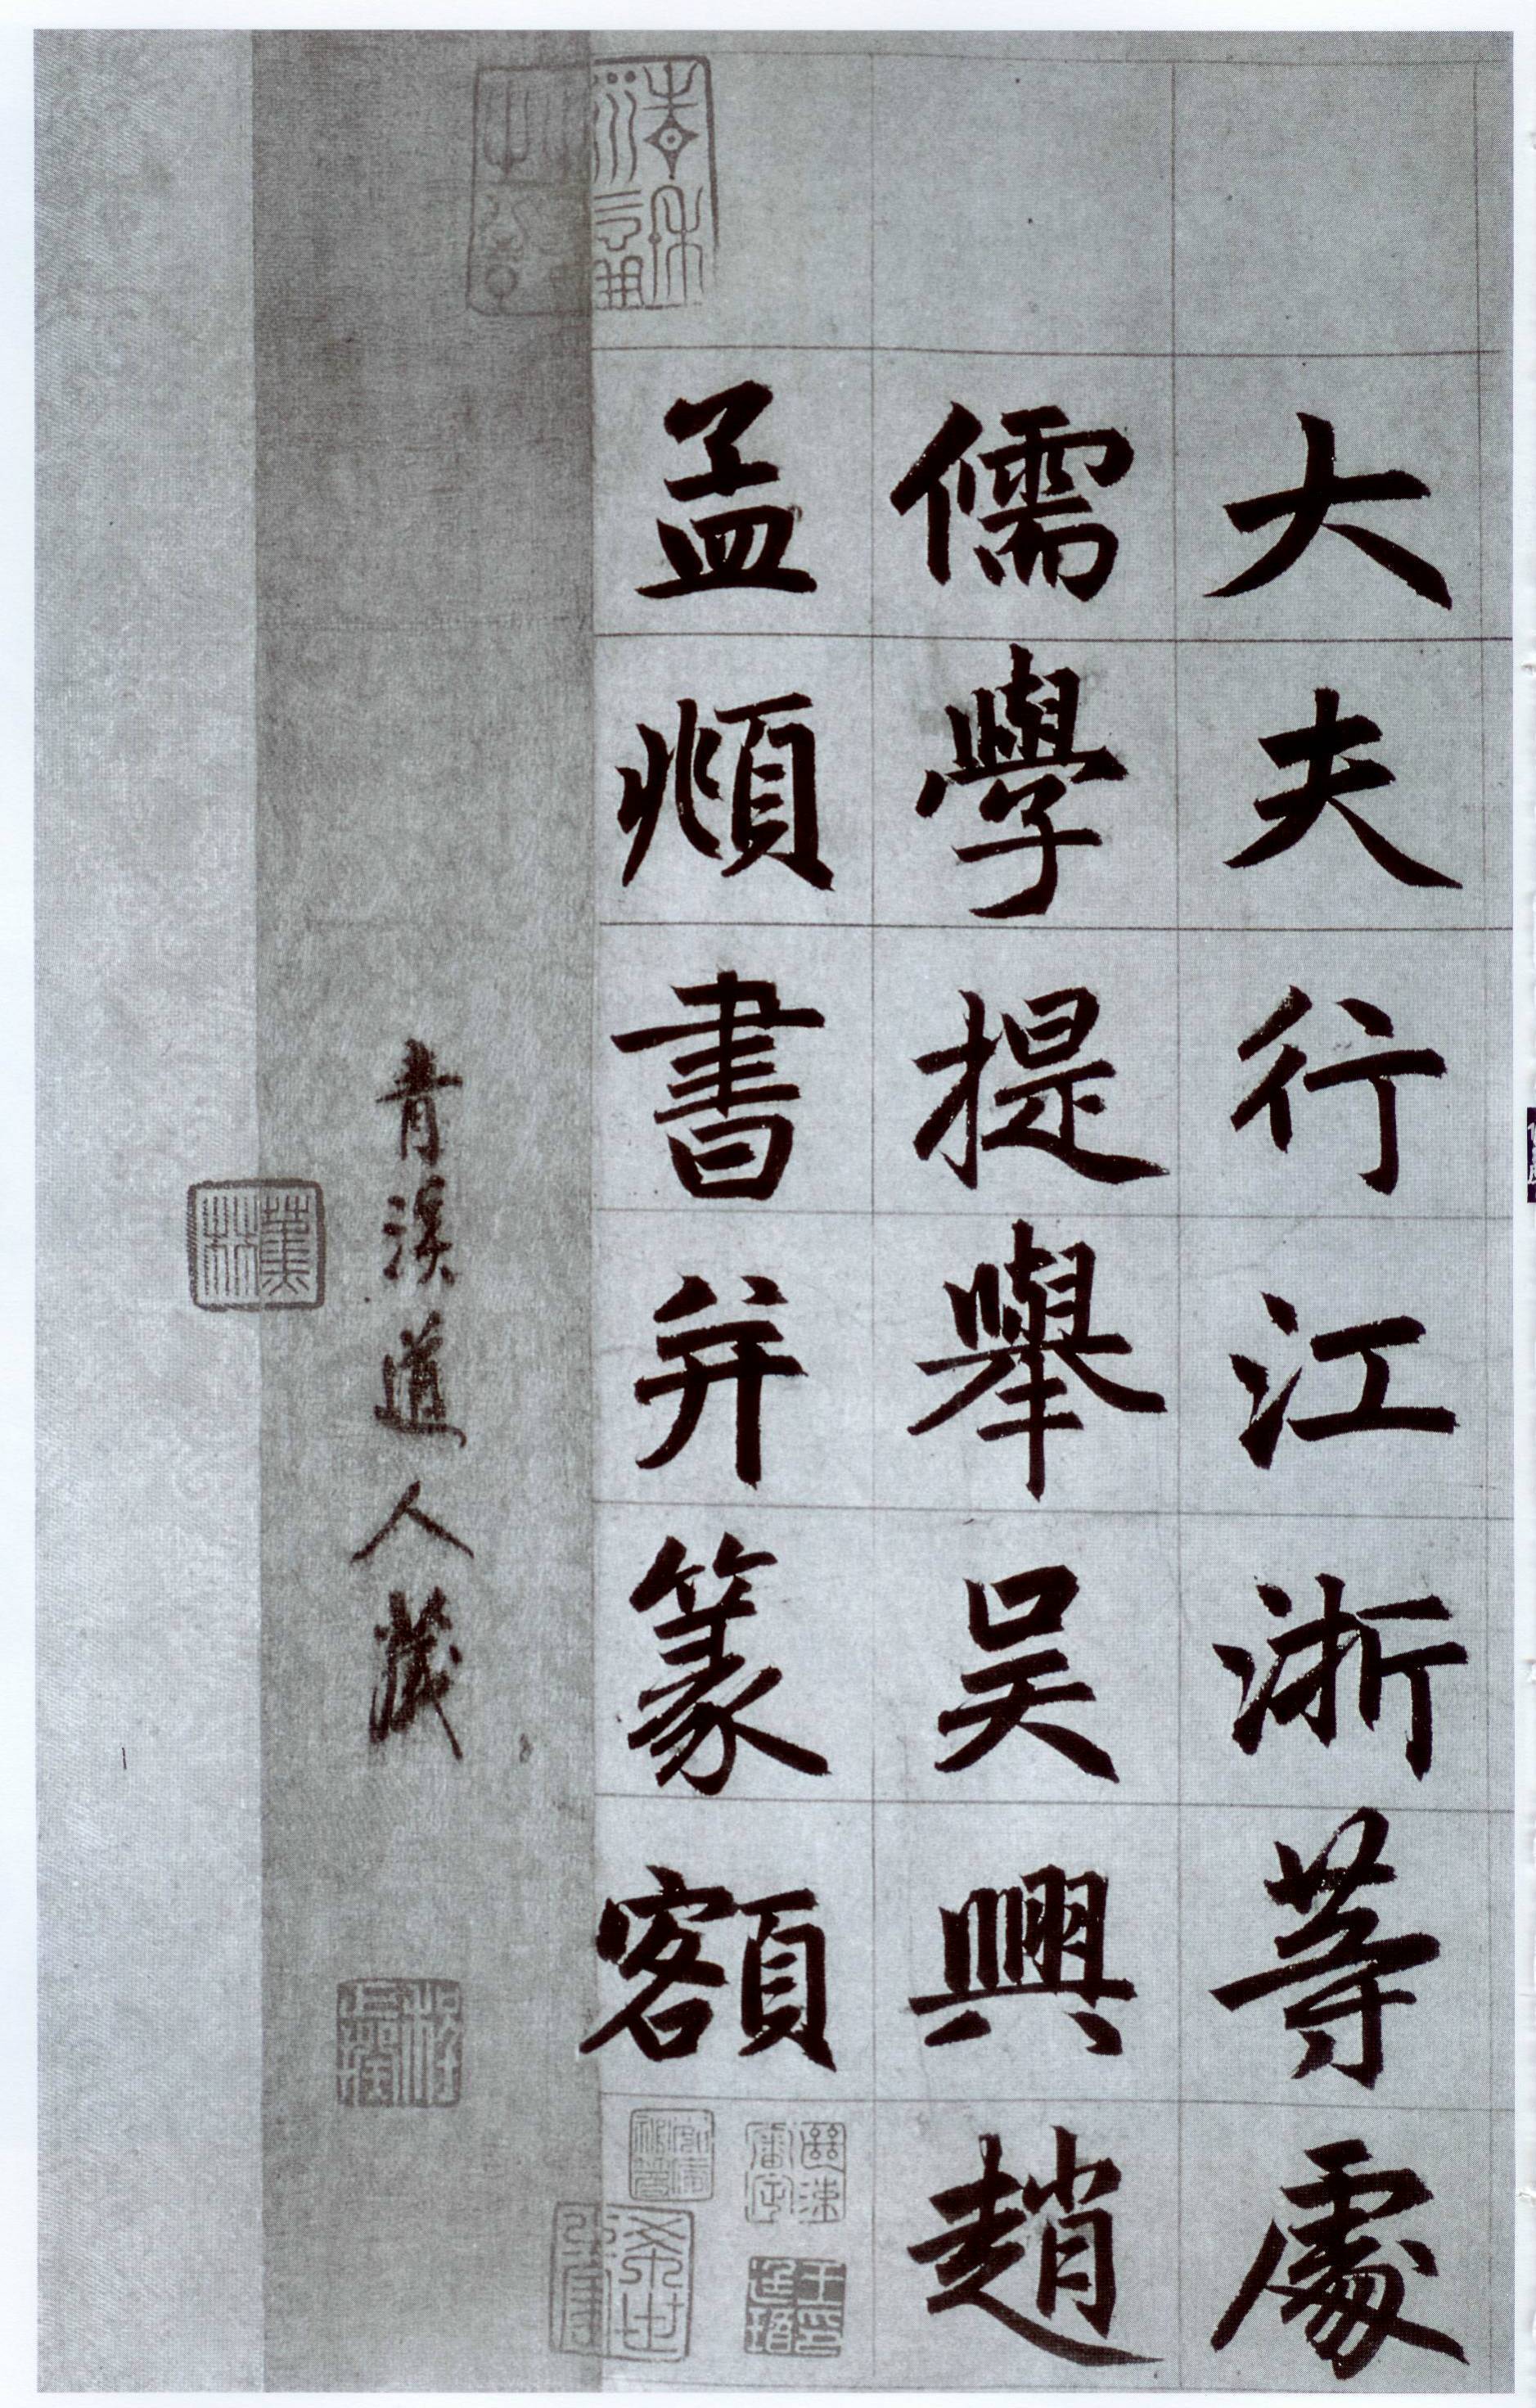 大夫行江浙等處
儒學提舉吴興趙
孟頫書并篆額
青溪道人藏
蕉林